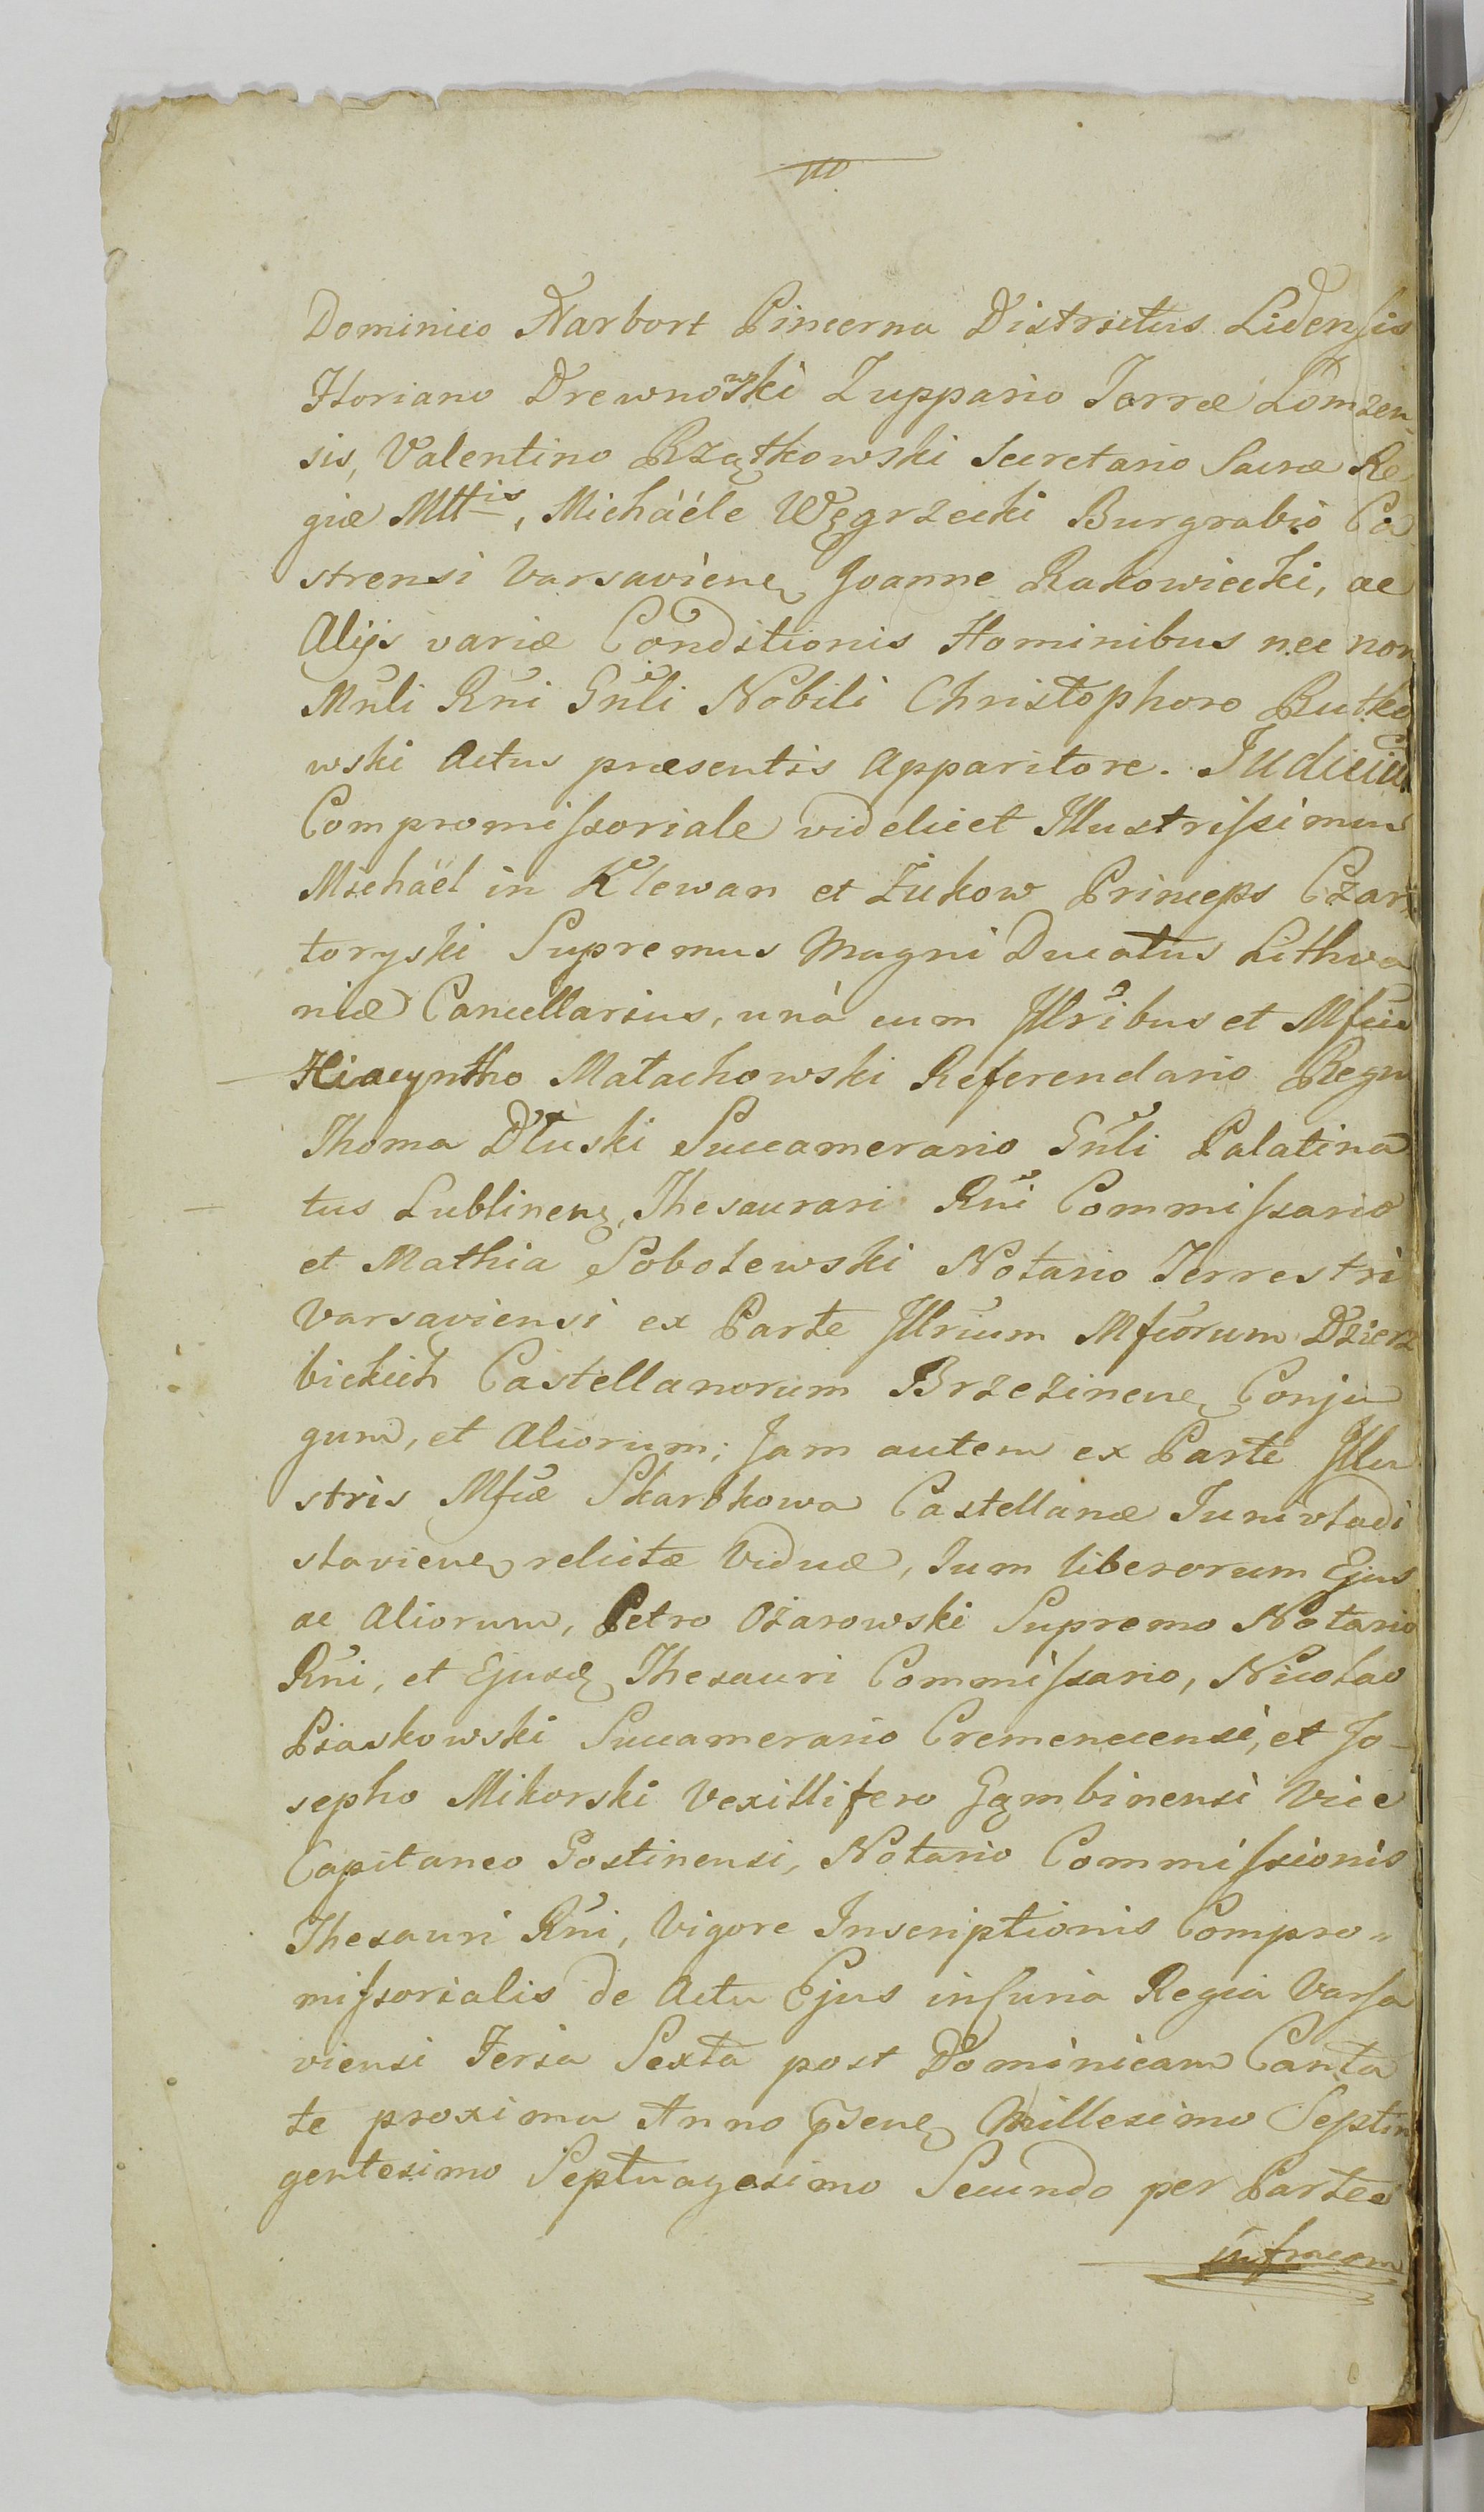 Dominico Narbort Pincerna Districtus Lidensis
Floriano Drewnowski Zuppario Terræ Łomzen-
sis, Valentino Rzątkowski Secretario Sacræ Re
giæ Mttis, Micháéle Węgrzecki Burgrabio Ca
strensi Varsaviene Joanne Rakowiecki, ac
Alijs variæ Conditionis Hominibus nec non
Mnli Rni Gnli Nobili Christophoro Rutko
wski Actus præsentis Apparitore. Judiciu
Compromissoriale videlicet Illustrissimus
Michaël in Klewan et Żukow Princeps Czar
toryski Supremus Magni Ducatus Lithva
niæ Cancellarius, unà cum Illribus et Mfcis
Hiacyntho Małachowski Referendario Regni
Thoma Dłuski Succamerario Gnli Palatina
tus Lublinene, Thesaurari Rni Commissario
et Mathia Sobolewski Notario Terrestri
Varsaviensi ex Parte Illrium Mfcorum Dzierz
bickich Castellanorum Brzezinene Conju
gum, et Aliorum; Jam autem ex Parte Illu
stris Mfcæ Skarbkowa Castellanæ Junivladi
slaviene relictæ Viduæ, Tum liberorum Ejus
ac Aliorum, Petro Ożarowski Supremo Notario
Rni, et Ejusd Thesauri Commissario, Nicolao
Piaskowski Succamerario Cremenecensi, et Jo-
sepho Mikorski Vexillifero Gambinensi Vice
Capitaneo Gostinensi, Notario Commissionis
Thesauri Rni, Vigore Inscriptionis Compro"
missorialis de Actu Ejus in Curia Regia Varsa
viensi Feria Sexta post Dominicam Canta
te proxima Anno Psene Millesimo Septin
gentesimo Septuagesimo Secundo per Partes